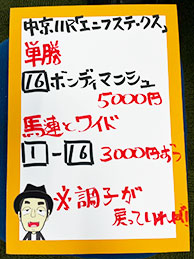 中京11R「エニフステークス」
単勝
16 ボンディマンシュ
5000円
馬連とワイド
1-16 3000円ずつ
※調子が
戻っていれば!